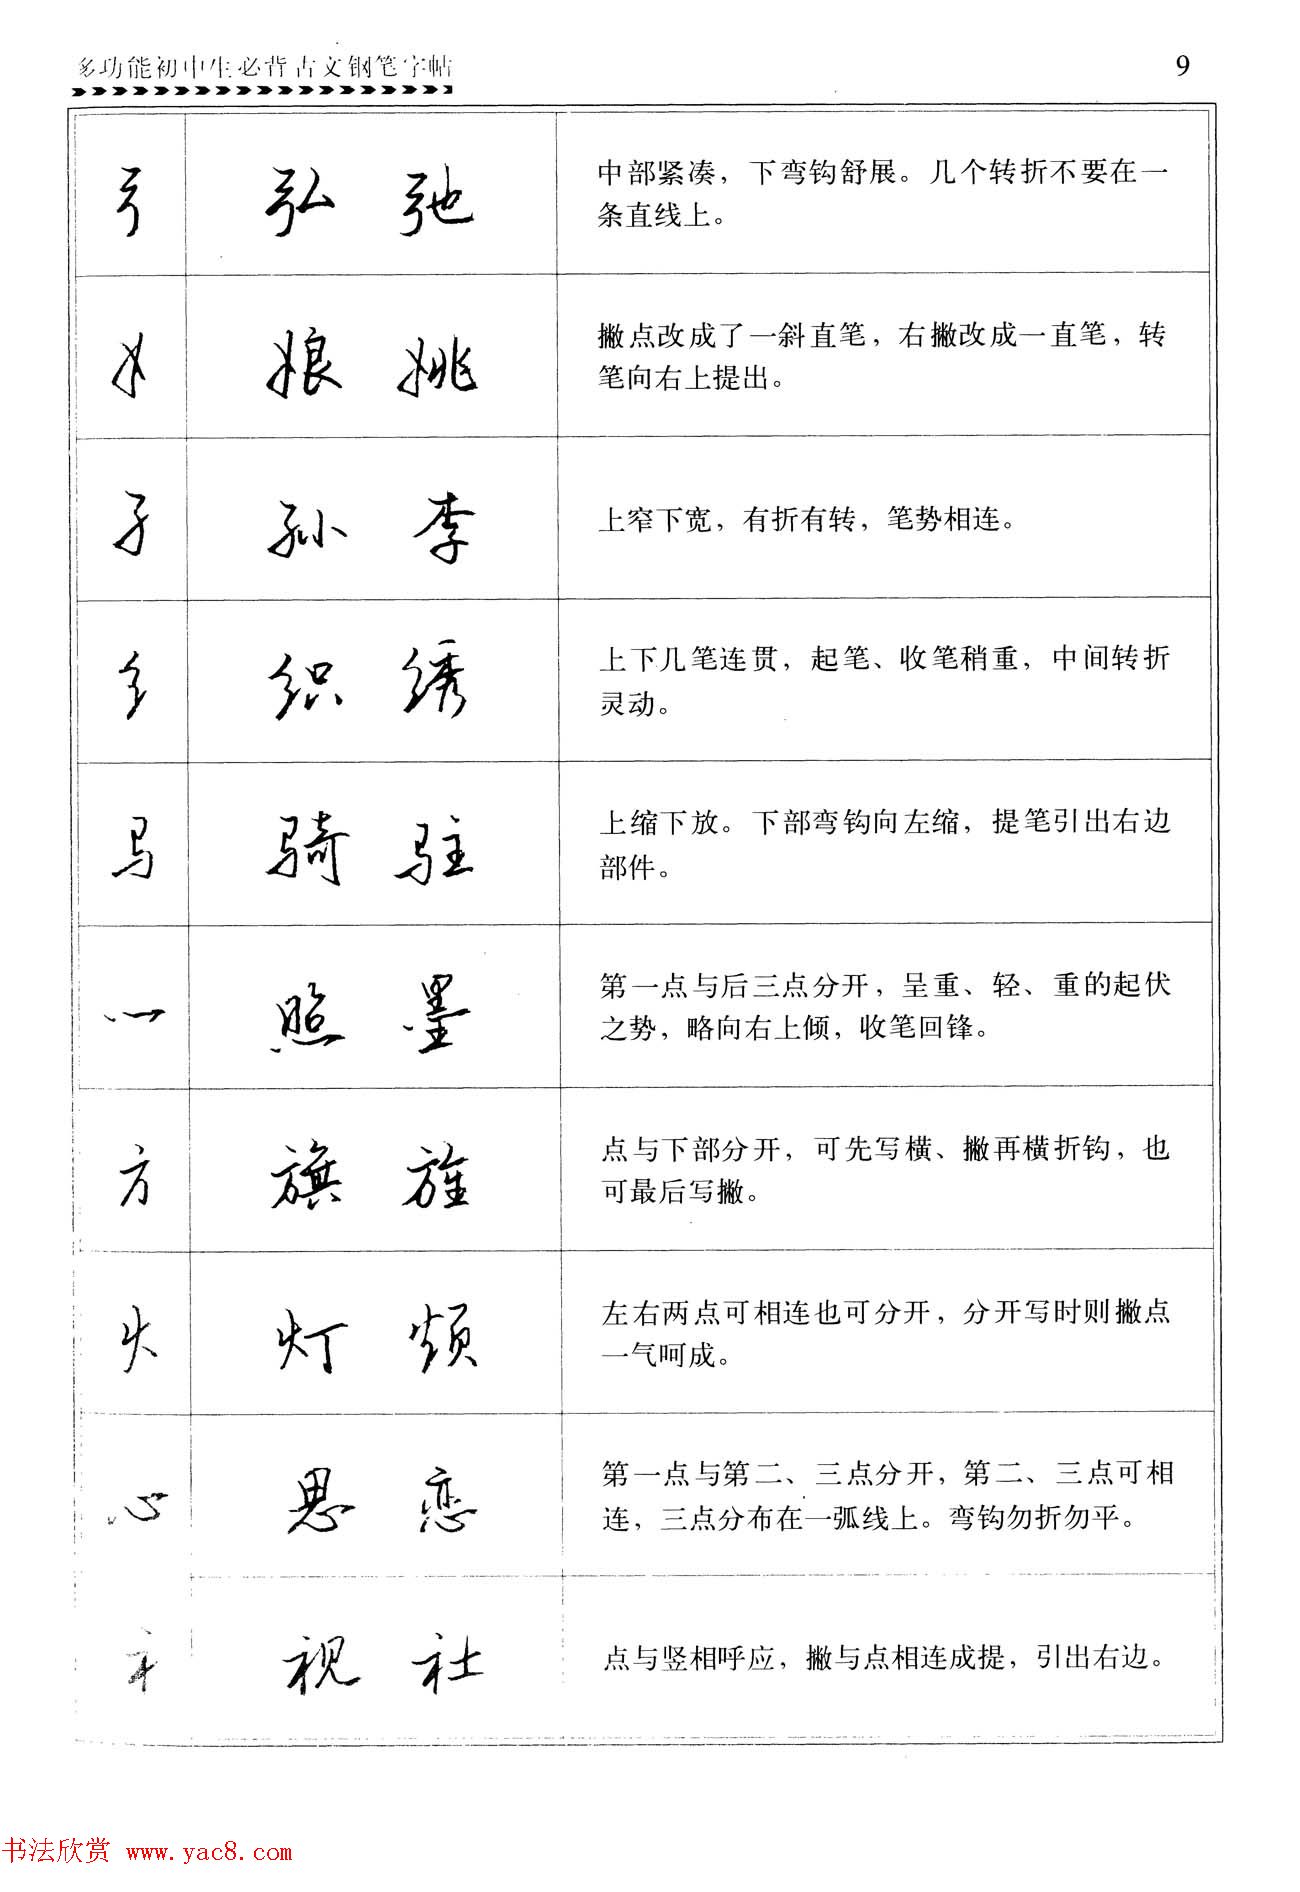 多功能初中生必背古文钢笔字帖
9
弓 弘 弛 中部紧凑，下弯钩舒展。几个转折不要在一
条直线上。
女 娘 姚 撇点改成了一斜直笔，右撇改成一直笔，转
笔向右上提出。
子 孙 李 上窄下宽，有折有转，笔势相连。
纟 织 绣 上下几笔连贯，起笔、收笔稍重，中间转折
灵动。
马 骑 驻 上缩下放。下部弯钩向左缩，提笔引出右边
部件。
灬 照 墨 第一点与后三点分开，呈重、轻、重的起伏
之势，略向右上倾，收笔回锋。
方 旗 旌 点与下部分开，可先写横、撇再横折钩，也
可最后写撇。
火 灯 烦 左右两点可相连也可分开，分开写时则撇点
一气呵成。
心 思 恋 第一点与第二、三点分开，第二、三点可相
连，三点分布在一弧线上。弯钩勿折勿平。
礻 视 社 点与竖相呼应，撇与点相连成提，引出右边。
书法欣赏 www.yac8.com